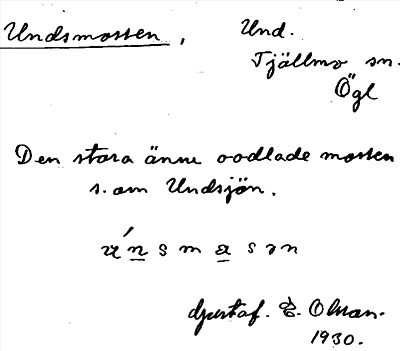 Undsmossen, Und.
Tjällmo sn.
Ögl
Den stora ännu oodlade mossen
s. om Undsjön.
ú n s m a s ə n
Gustaf. E. Olsson.
1930.